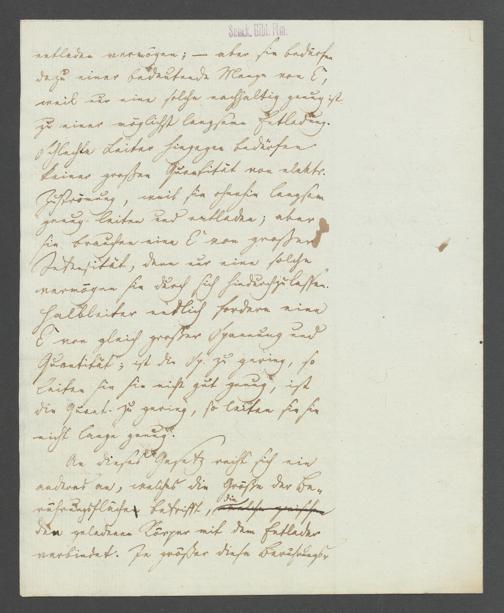 Senck. Bibl. Ffm.
entladen vermögen; — aber sie bedürfen
dazu einer bedeutende Menge von E,
weil nur eine solche nachhaltig genug ist
zu einer möglichst langsamen Entladung.
Schlechte Leiter hingegen bedürfen
keiner großen Quantität von elektr.
Zuströmung, weil sie ohnehin langsam
genug leiten und entladen; aber
sie brauchen eine E von großer
Intensität, denn nur eine solche
vermögen sie durch sich hindurchzulassen.
Halbleiter endlich fordern eine
E von gleich großer Spannung und
Quantität; ist die Sp. zu gering, so
leiten sie sie nicht gut genug, ist
die Quant. zu gering, so leiten sie sie
nicht lange genug.
An dieses Gesetz reiht sich ein
anderes an, welches die Größe der Be-
rührungsfläche betrifft, die
den geladenen Körper mit dem Entlader
verbindet. Je größer diese Berührungs-